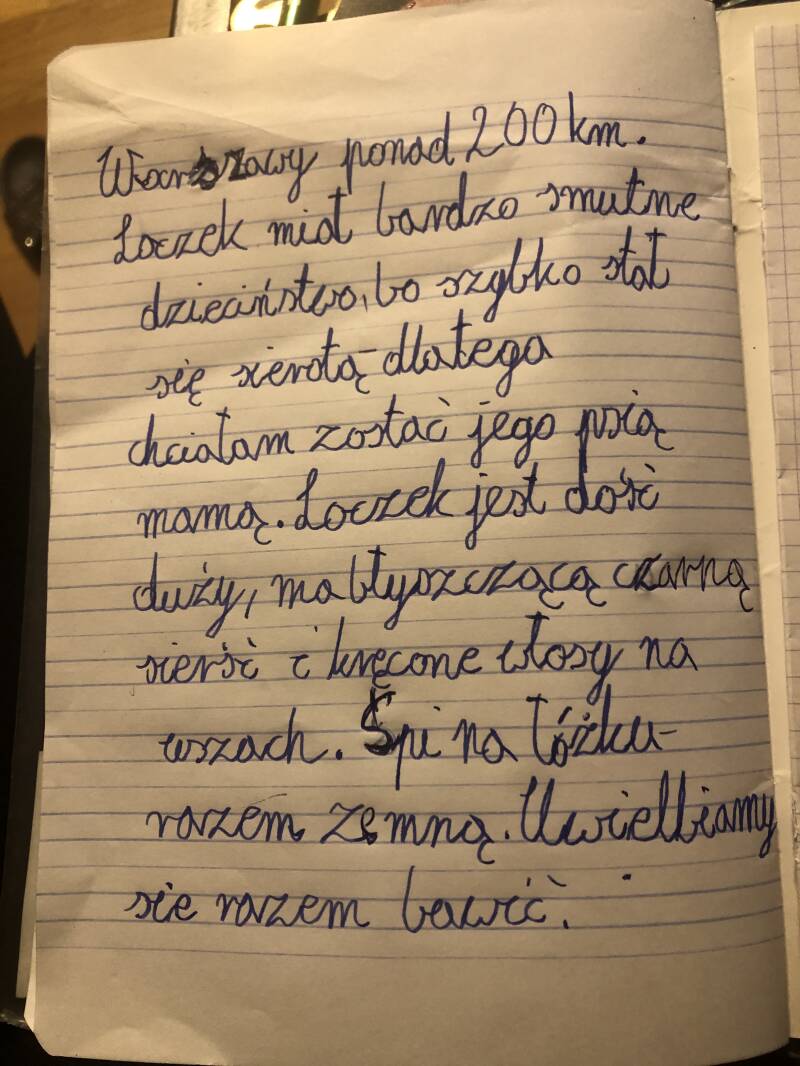 Warszawy ponad 200 km.
Loczek miał bardzo smutne
dzieciństwo, bo szybko stał
się sierotą - dlatega
chciałam zostać jego psią
mamą. Loczek jest dość
duży, ma błyszczącą czarną
sierść i kręcone włosy na
uszach. Śpi na łóżku
razem zemną. Uwielbiamy
sie razem bawić.